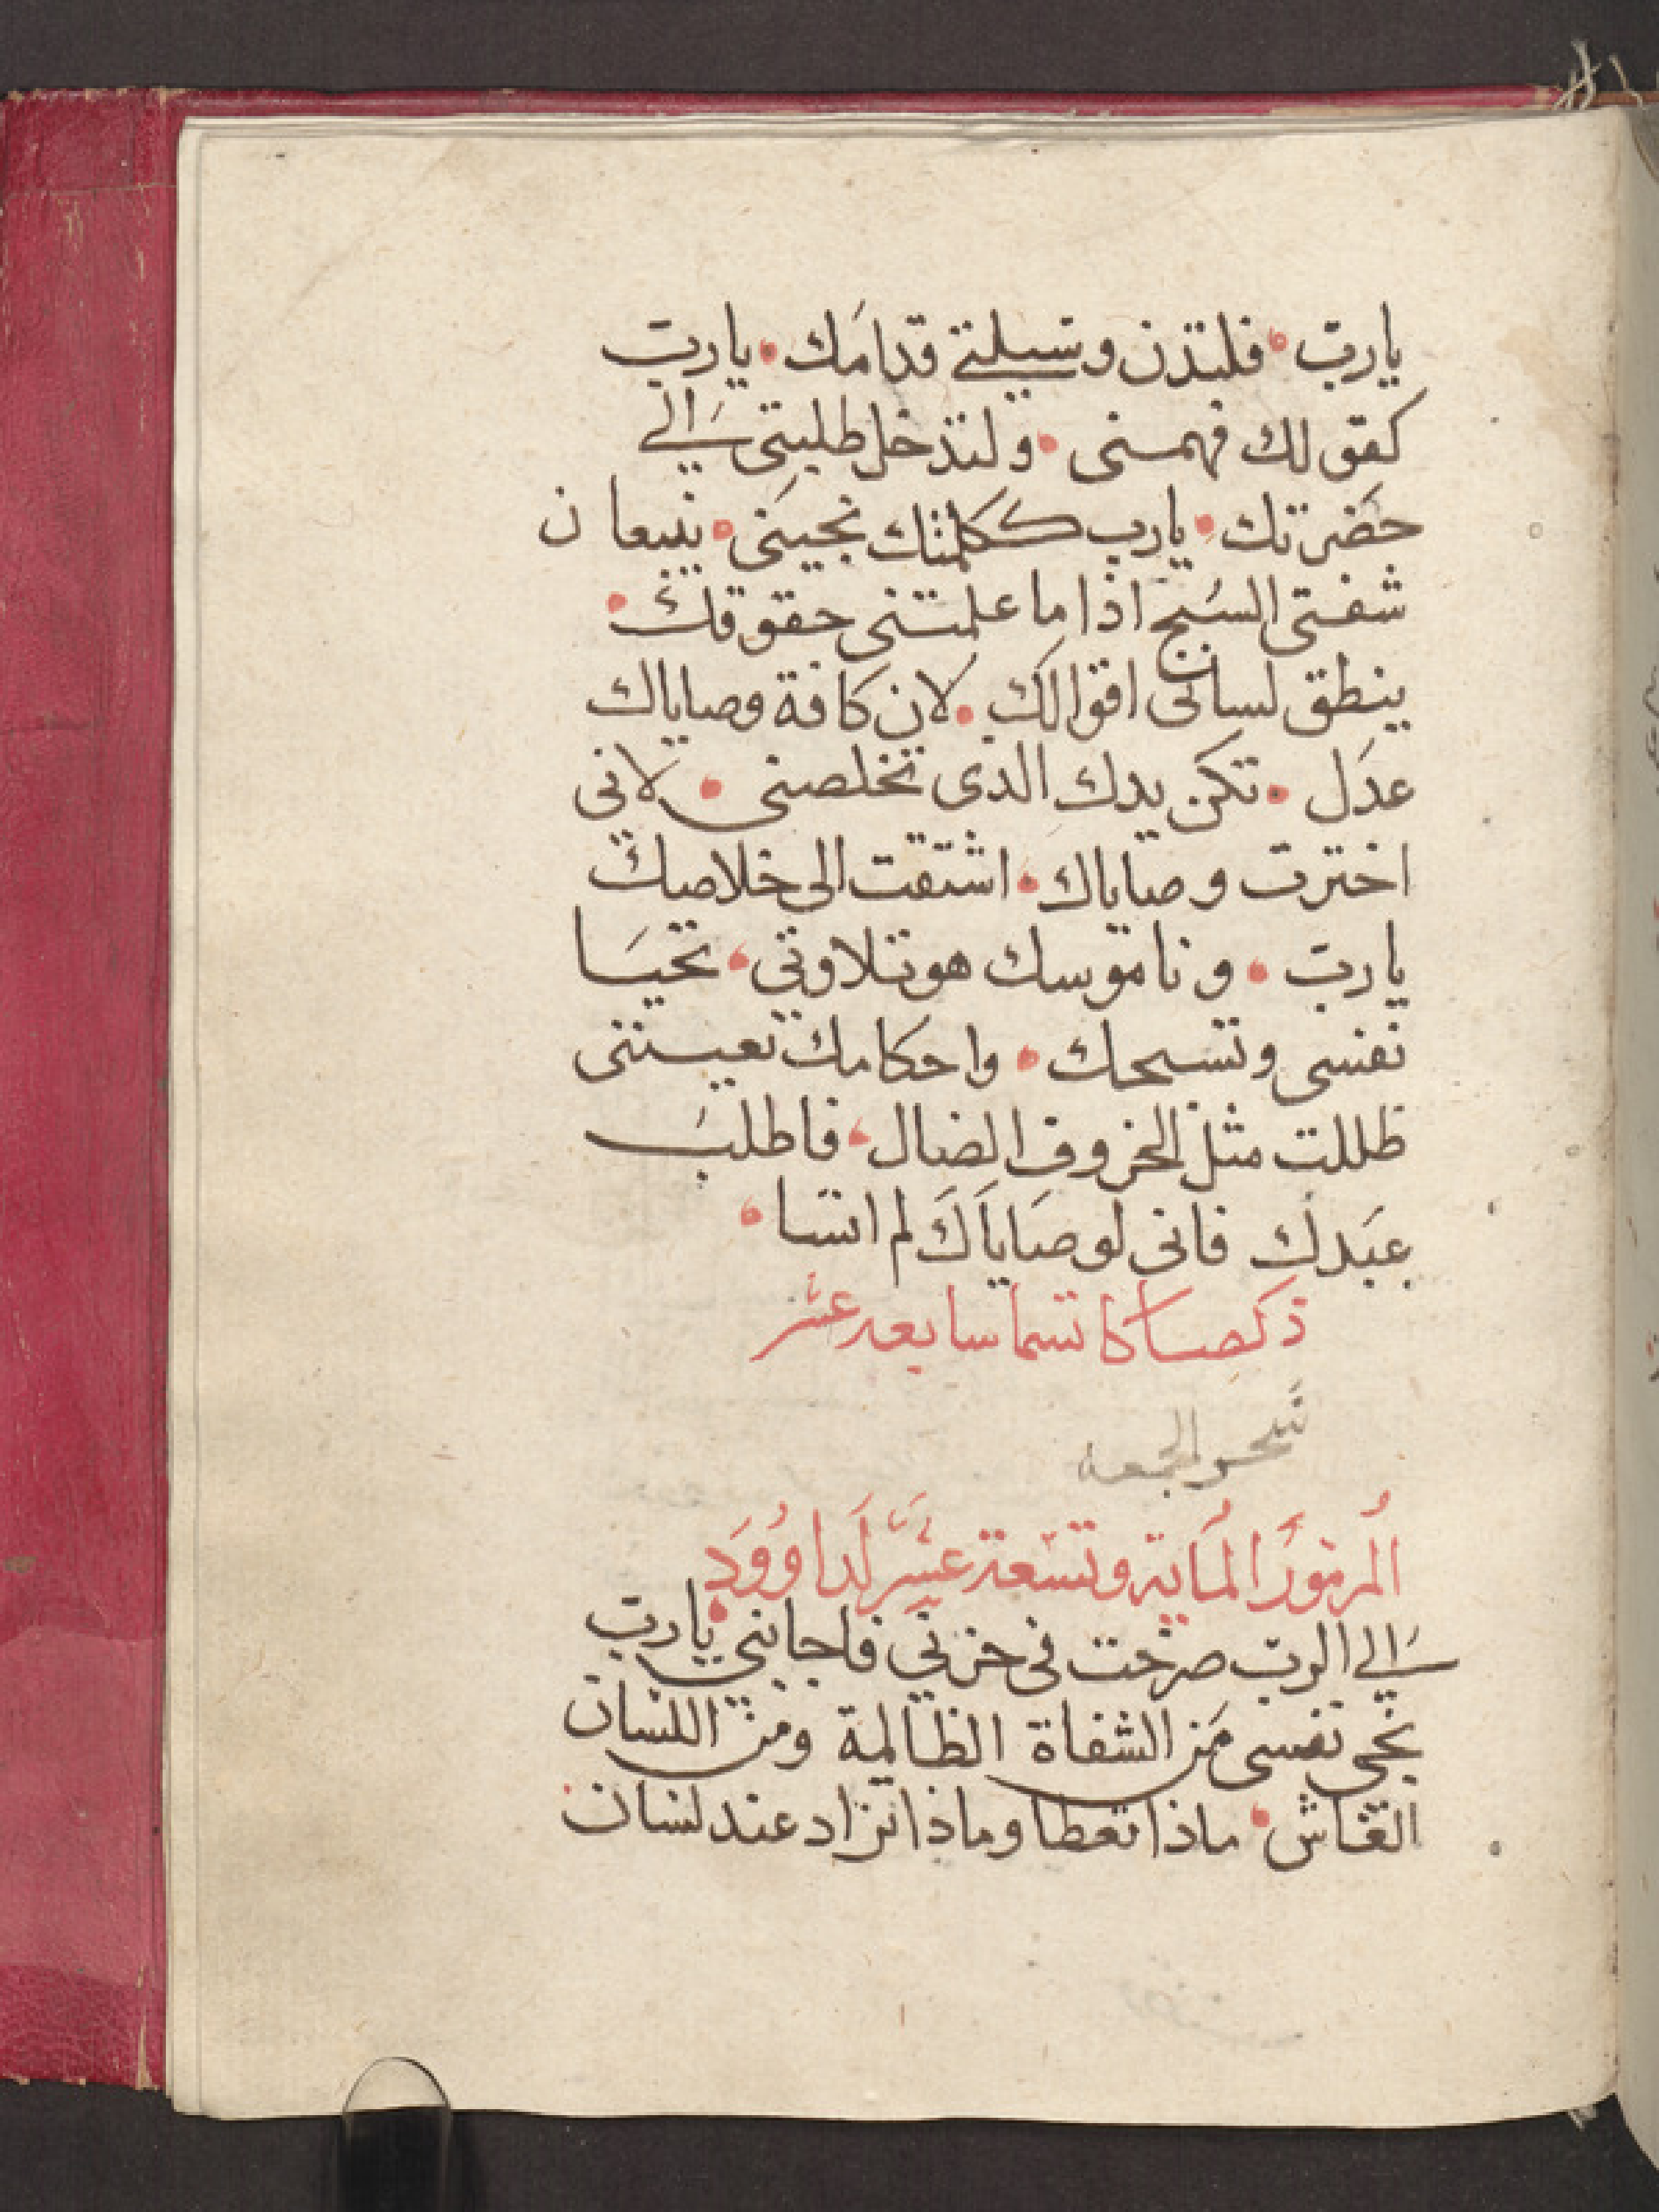 يا ربّ • فلتدن وسيلتي قدامَك • يا ربّ
كقولك فهمنى • ولتدخل طلبتى الي
حضرتك • يا رب ككلمتك نجينى • تنبعان
شفتى السبح اذا ما علمتنى حقوقك •
ينطق لسانى اقوالك • لان كافة وصاياك
عدل • تكن يدك الدى تخلصنى • لانى
اخترت وصاياك • اشتقت الى خلاصك
يا ربّ • وناموسك هو تلاوتي • تحيَا
نفسى وتسبحك • واحكامك تعيننى
ظللت مثل الخروف الضال • فاطلبَ
عبَدك فانى لوصاياَكَ لم انسا •
ذكصا كاتسما سابعه عشر
سحر الجمعه
المزموُر الماية وتسعة عشَر لداوُوَد
الي الربّ صرخت فى حزني فاجابني • يا ربّ
نجى نفسى مَن الشفاة الظالمة ومن اللسان
الغاش • ماذا تعطا وماذا تزاد عند لسان